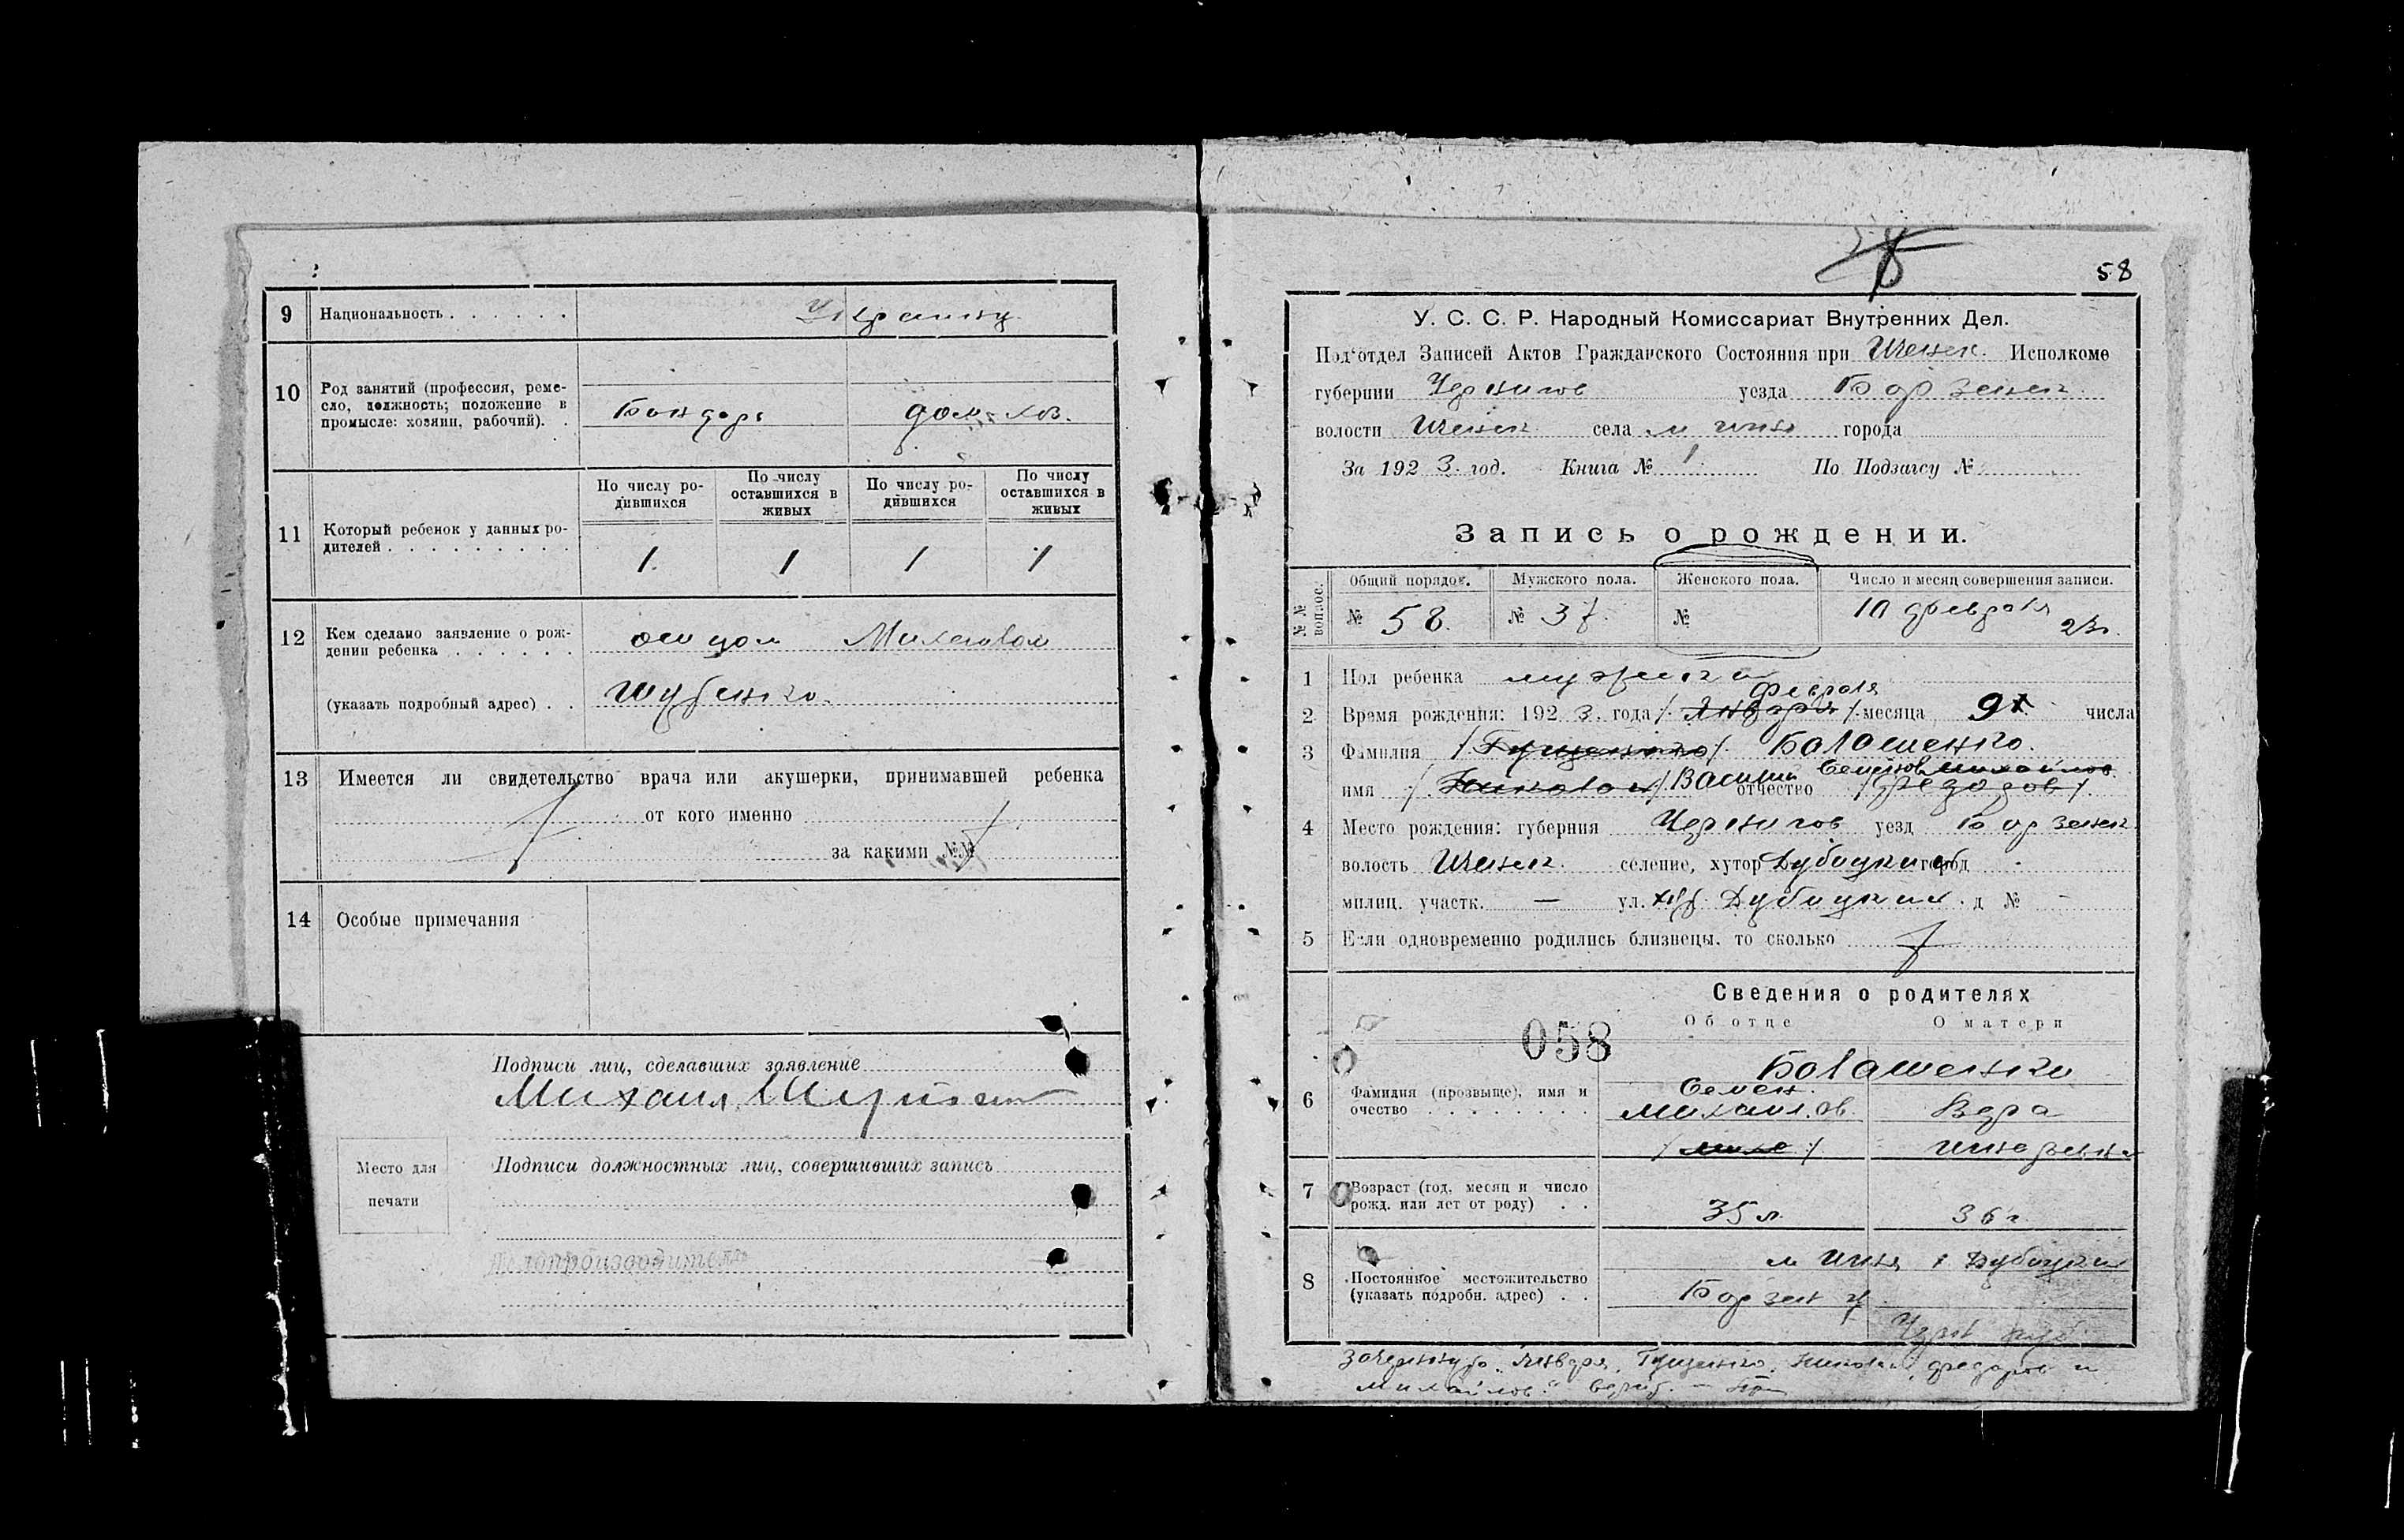 9 Национальность . . . . . . Украинц
10 Род занятий (профессия, реме-
сло, должность; положение в
промысле: хозяин, рабочий). .
Бондарь дом. хоз.
По числу ро-
дившихся
По числу
оставшихся в
живых
По числу ро-
дившихся
По числу
оставшихся в
живых
11 Который ребенок у данных ро-
дителей . . . . . . . . .
1. 1 1 1
12 Кем сделано заявление о рож-
дении ребенка . . . . . . отцом
(указать подробный адрес) . .
13 Имеется ли свидетельство врача или акушерки, принимавшей ребенка
от кого именно
за какими №№
14 Особые примечания
Подписи лиц, сделавших заявление
Михаил
Место для
печати
Подписи должностных лиц, совершивших запись
Делопроизводитель
58
У. С. С. Р. Народный Комиссариат Внутренних Дел.
Под‘отдел Записей Актов Гражданского Состояния при Иченск. Исполкоме
губернии Чернигов уезда Борзенск
волости Иченск села м Ичня города
За 192 3. год. Книга № 1. По Подзагсу №
Запись о рождении.
№ № вопрос.
Общий порядок. Мужского пола. Женского пола. Число и месяц совершения записи.
№ 58. № 37. № 10 февраля
23г.
1 Пол ребенка мужского
Февраля
2 Время рождения: 192 3. года /. Января /. месяца 9 числа
3 Фамилия /. Грищенко /. Балашенко.
Семенов Михайлов
имя /. Николай /. Василий отчество /. Федоров /.
4 Место рождения: губерния Чернигов уезд Борзенск
волость Иченск селение, хутор город -
милиц. участк. — ул. хут. д № -
5 Если одновременно родились близнецы, то сколько
Сведения о родителях
Об отце О матери
058
Балашенко
6 Фамилия (прозвыще), имя и
очество . . . . . . . .
Семен
Михайлов. Вера
/ миха /
7 Возраст (год, месяц и число
рожд. или лет от роду) . .
35 л. 36 г.
8 Постоянное местожительство
(указать подробн. адрес) . .
м Ичня
Борзен у
Черн губ.
Зачеркнуто „Января, Грищенко, Николай, Федоров и
Михайлов“